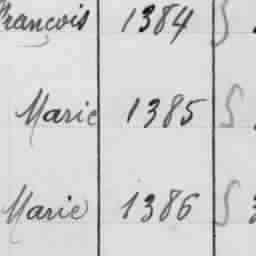 François 1384 S
Marie 1385 S
Marie 1386 S